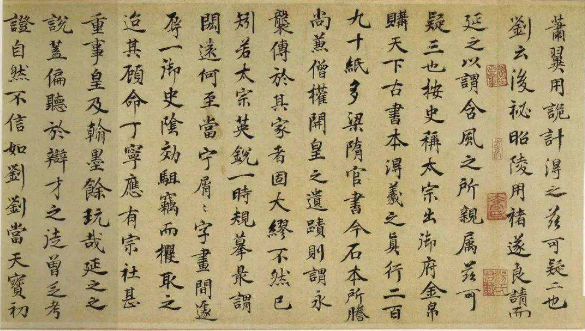 蕭翼用詭計得之茲可疑二也
劉云後祕昭陵用褚遂良請而
延之以謂含風之所親屬茲可
疑三也按史稱太宗出御府金帛
購天下古書本得羲之真行二百
九十紙多梁隋官書今石本所謄
尚兼僧權開皇之遺蹟則謂永
襲傳於其家者固大繆不然已
矧若太宗英銳一時規摹最謂
閎遠何至當宁屑々字畫間遽
辱一御史陰効駔竊而攫取之
迨其顧命丁寧應有宗社甚
重事皇及翰墨餘玩哉延之之
說蓋偏聽於辯才之徒曾乏考
證自然不信如劉劉當天寶初